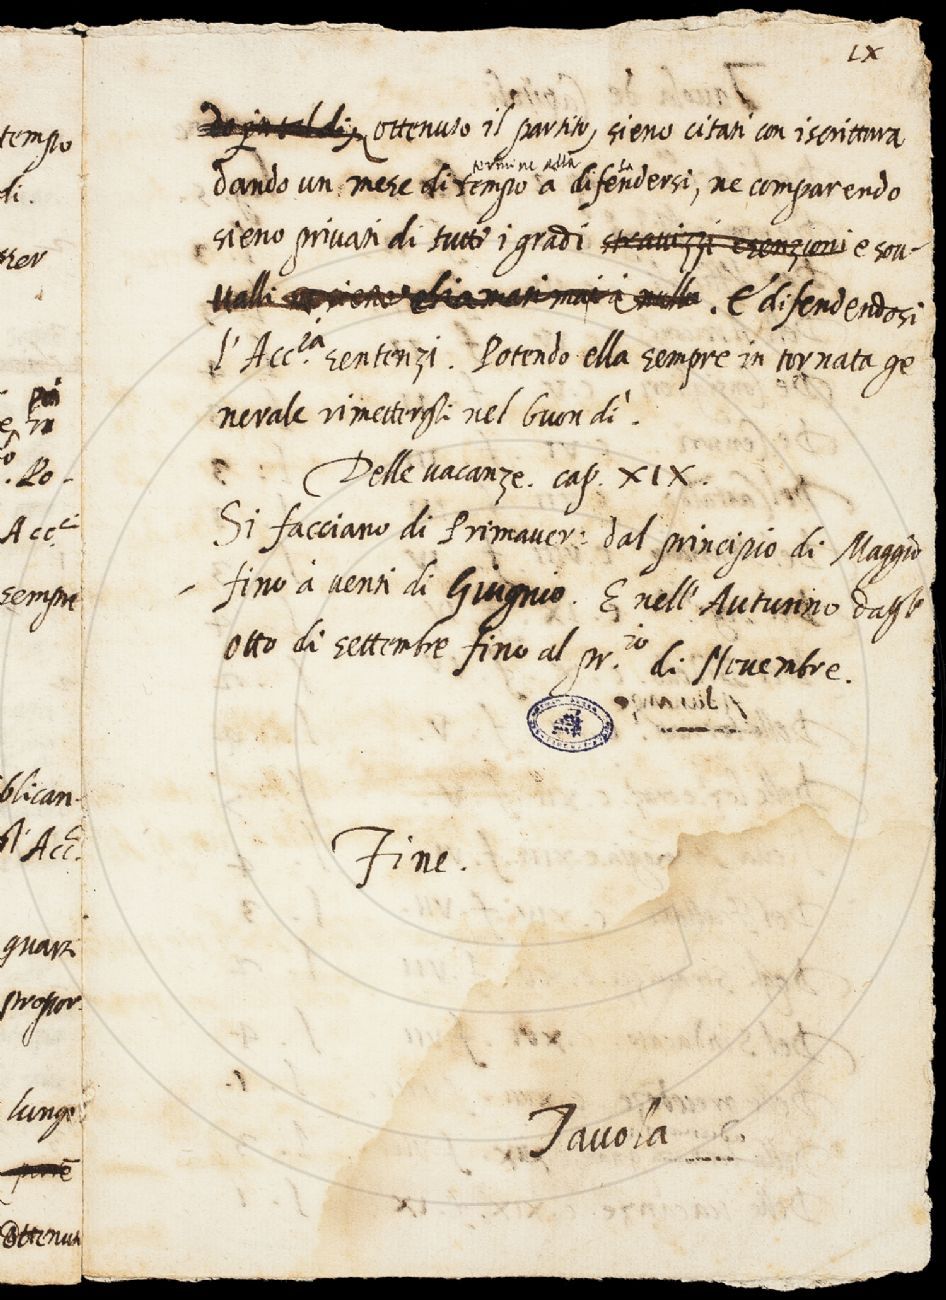 IX
ottenuto il partito, sieno citati con iscrittura
dando un mese di tempo termine alla a difendersi, ne comparendo
sieno privati di tutti i gradi stravizzi esenzioni e sou-
ualli . E difendendosi
l'Acc.ia sentenzi. Potendo ella sempre in tornata ge
nerale rimettergli nel buon dì.
Delle vacanze. cap. XIX.
Si facciano di Primauer: dal principio di Maggio
fino à venti di Giugnio. E nell'Autunno dagli
otto di settembre fino al pr.io di Novembre.
Fine.
Tauola
tempo
di.
Po-
Acc.i
sempre
blican-
l'Acc.
quart
propor
lunge
Ottenut